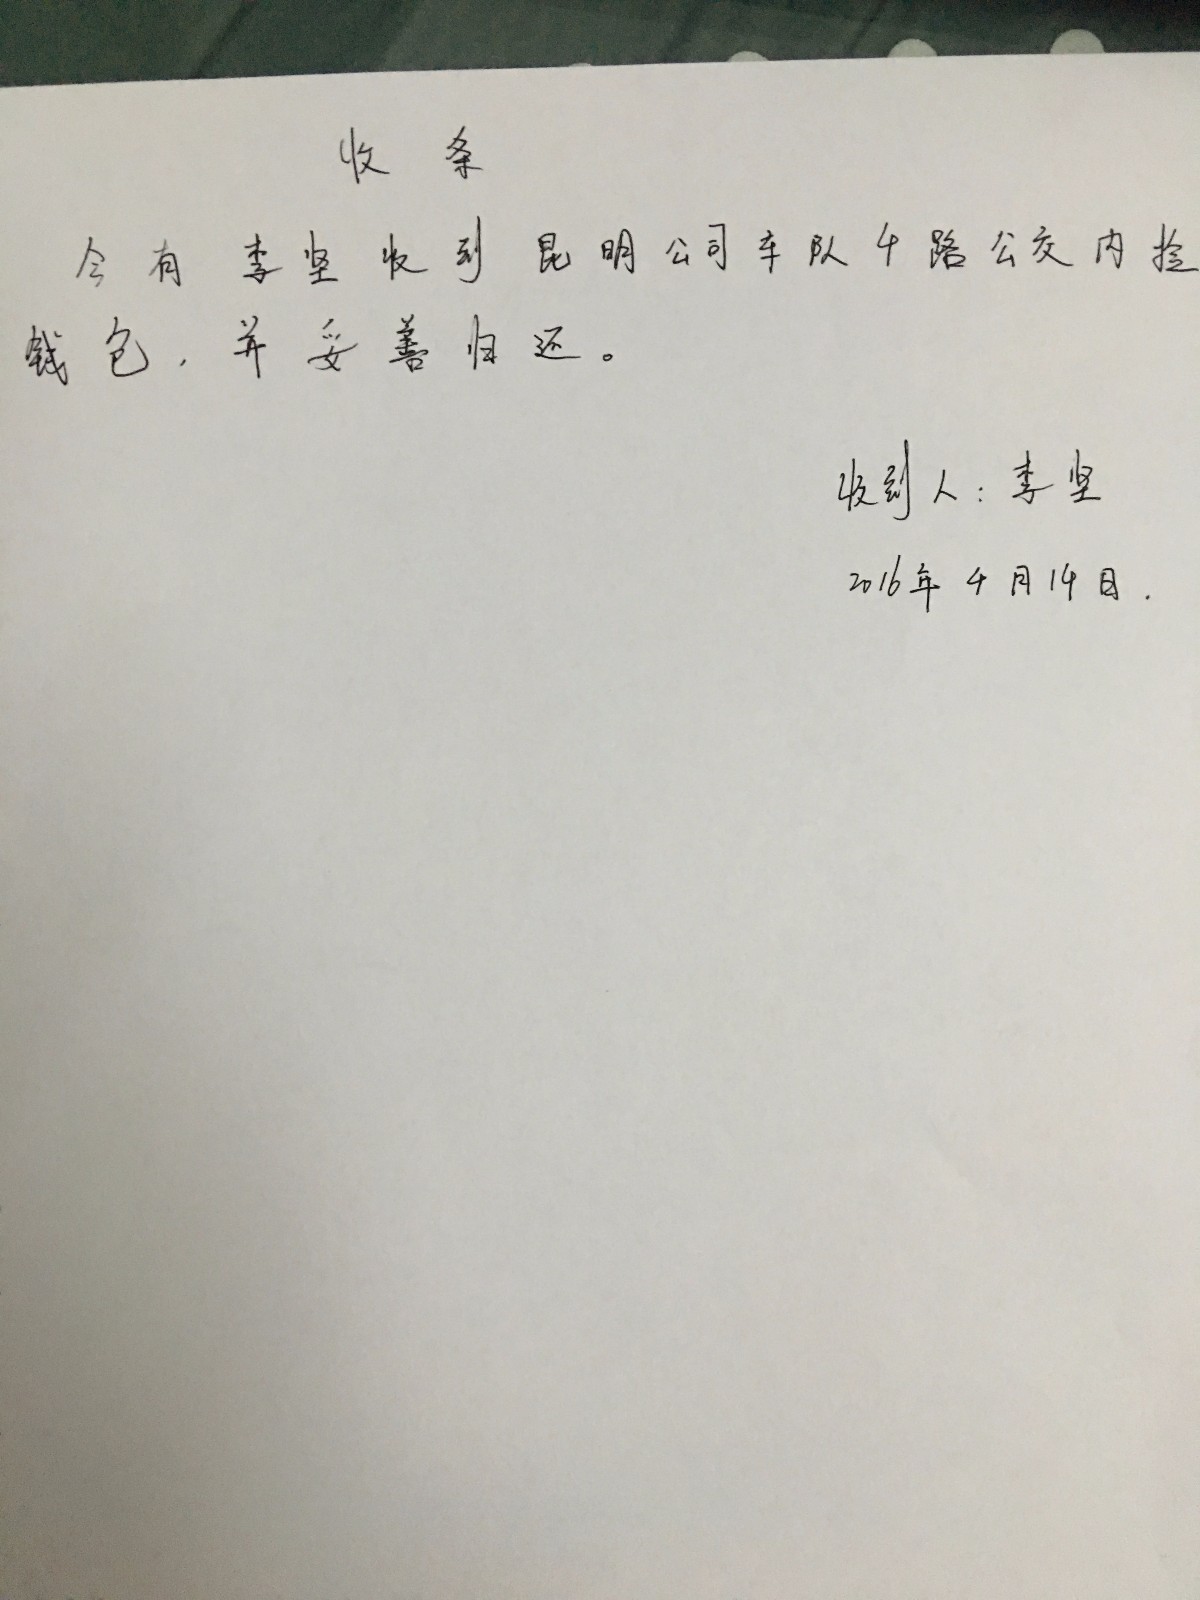 收条
今有李坚收到昆明公司车队4路公交内捡
钱包，并妥善归还。
收到人：李坚
2016年4月14日.